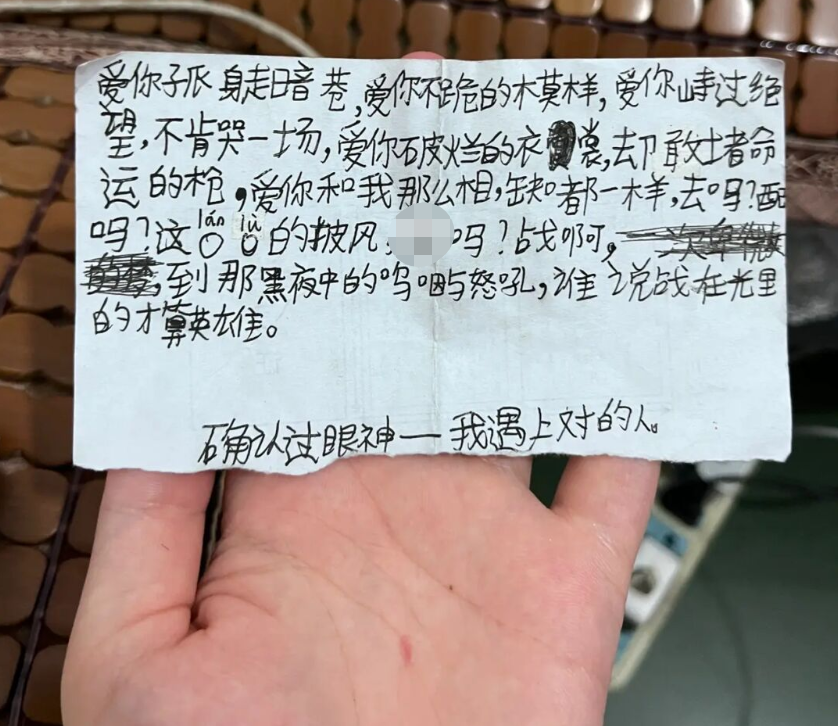 爱你孤身走暗巷,爱你不跪的模样,爱你峙过绝
望,不肯哭一场,爱你破烂的衣裳,却敢堵命
运的枪,爱你和我那么相,缺都一样,去吗?配
吗?这lán lǚ的披风,吗?战啊,
到那黑夜中的呜咽与怒吼,谁说战在光里
的才算英雄。
确认过眼神——我遇上对的人。